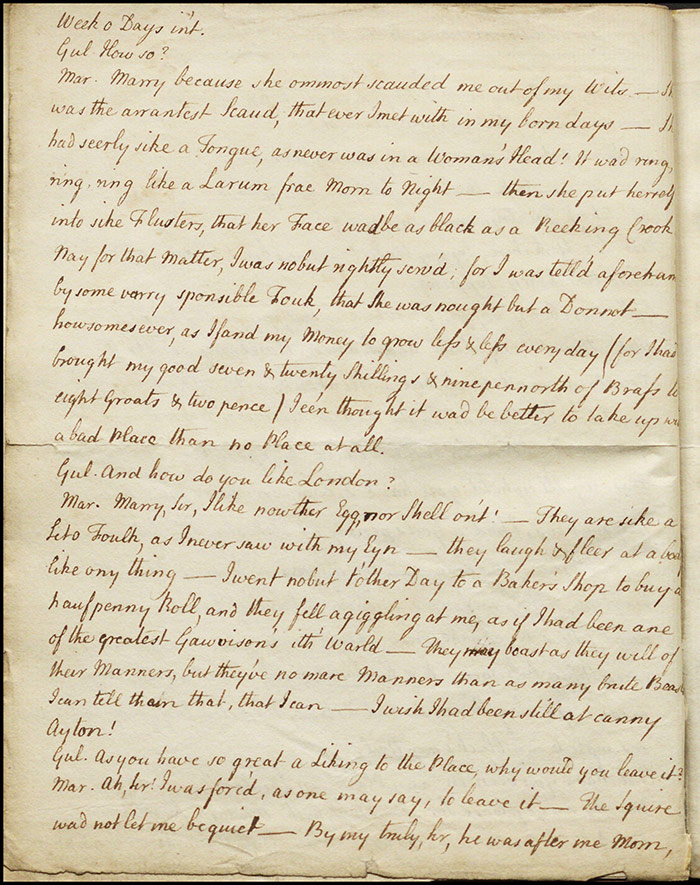 Week o Days in't.
Gul. How so?
Mar. Marry because she ommost scauded me out of my Wits — Sh
was the arrantest Scaud, that ever I met with in my born days — Sh
had seerly sike a Tongue, as never was in a Woman's Head! It wad ring,
ring, ring like a Larum frae Morn to Night — then she put hersely
into sike Flusters, that her Face wad be as black as a Reeking Crook
Nay for that Matter, I was nobut rightly serv'd, for I was tell'd aforehan
by some varry sponsible Fouk, that She was nought but a Donnot —
howsomesever, as I fand my Money to grow less & less every day (for I had
brought my good seven & twenty Shillings & ninepennorth of Brass to
eight Groats & two pence) I e'en thought it wad be better to take up wi
a bad Place than no Place at all.
Gul. And how do you like London?
Mar. Marry, Sir, I like nowther Egg, nor Shell on't! — They are sike a
Set o Foulk, as I never saw with my Eyn — they laugh & fleer at a body
like ony thing — I went nobut t'other Day to a Baker's Shop to buy a
haufpenny Roll, and they fell a giggling at me, as if I had been ane
of the greatest Gawvison's ith' Warld — They may boast as they will of
their Manners, but they've no mare Manners than as many brute Beas
I can tell tham that, that I can — I wish I had been still at canny
Ayton!
Gul. As you have so great a Liking to the Place, why would you leave it?
Mar. Ah, Sir! I was forc'd, as one may say, to leave it — The Squire
wad not let me be quiet — By my truly, Sir, he was after me Morn,